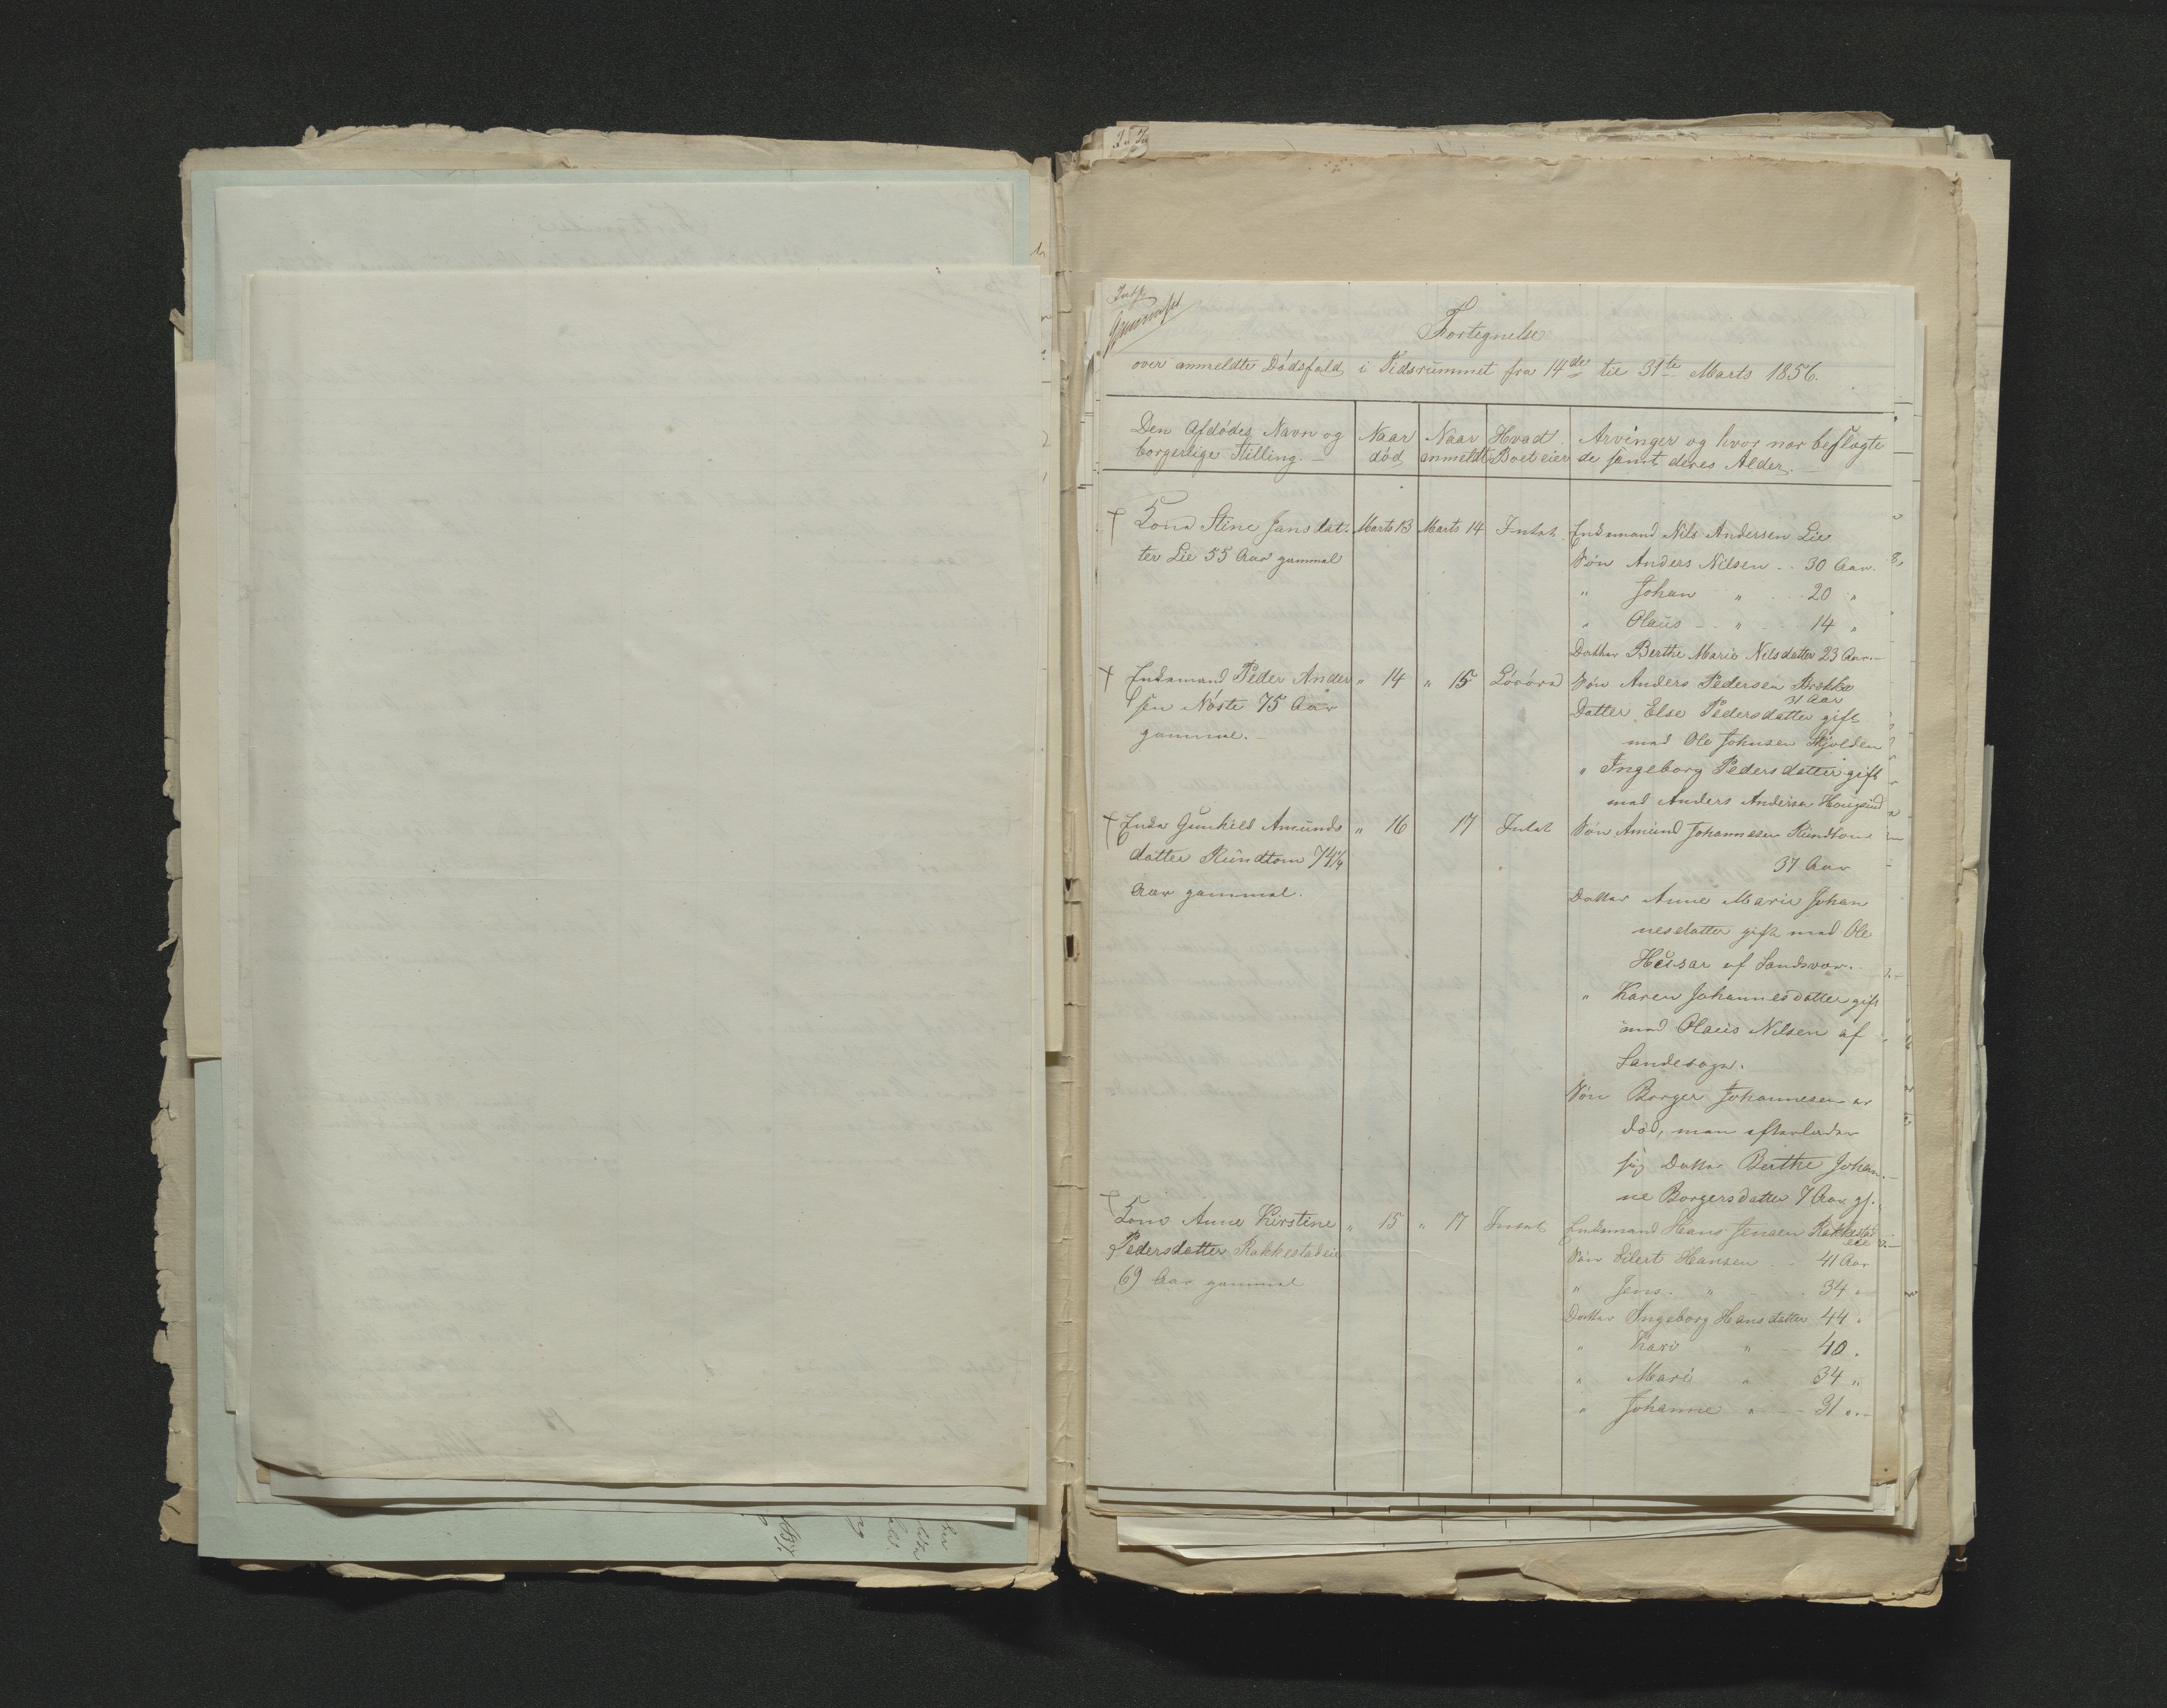 Fortegnelse
over anmeldte Dødsfald i Tidsrummet fra 14de til 31te Marts 1856.
Den Afdødes Navn og borgerlige Stilling. Naar død Naar anmeldt Hvad Boet eier Arvinger og hvor nær beslægtede samt deres Alder.
† Kona Stine Jansdat- Marts 13 Marts 14 Intet Enkemand Nils Andersen Lie
ter Lie 55 Aar gammel Søn Anders Nilsen .. 30 Aar.
" Johan " 20 "
" Olaus " 14 "
Datter Berthe Marie Nilsdatter 23 Aar.
† Enkemand Peder Ander " 14 " 15 Løsøre Søn Anders Pedersen Brekke
sen Nøste 75 Aar 31 Aar
gammel. Datter Else Pedersdatter gift
med Ole Johnsen Skjolden
" Ingeborg Pedersdatter gift
med Anders Andersen Hougsund
† Enke Gunhild Amunds " 16 17 Intet Søn Amund Johannesen Rundtom
datter Rundtom 74¼ 37 Aar
Aar gammel. Datter Anne Marie Johan
nesdatter gift med Ole
Husar af Sandsvær.
" Karen Johannesdatter gift
med Olaus Nilsen af
Sandesogn.
Søn Borger Johannesen er
død, men efterlader
sig Datter Berthe Johan
ne Borgersdatter 7 Aar gl.
† Kone Anne Kirstine " 15 " 17 Intet Enkemand Hans Jensen Rakkestad
eie
Pedersdatter Rakkestadeie Søn Eilert Hansen .. 41 Aar
69 Aar gammel " Jens " 34 "
Datter Ingeborg Hansdatter 44 "
" Kari " 40 "
" Mari " 34 "
" Johanne " 31 "